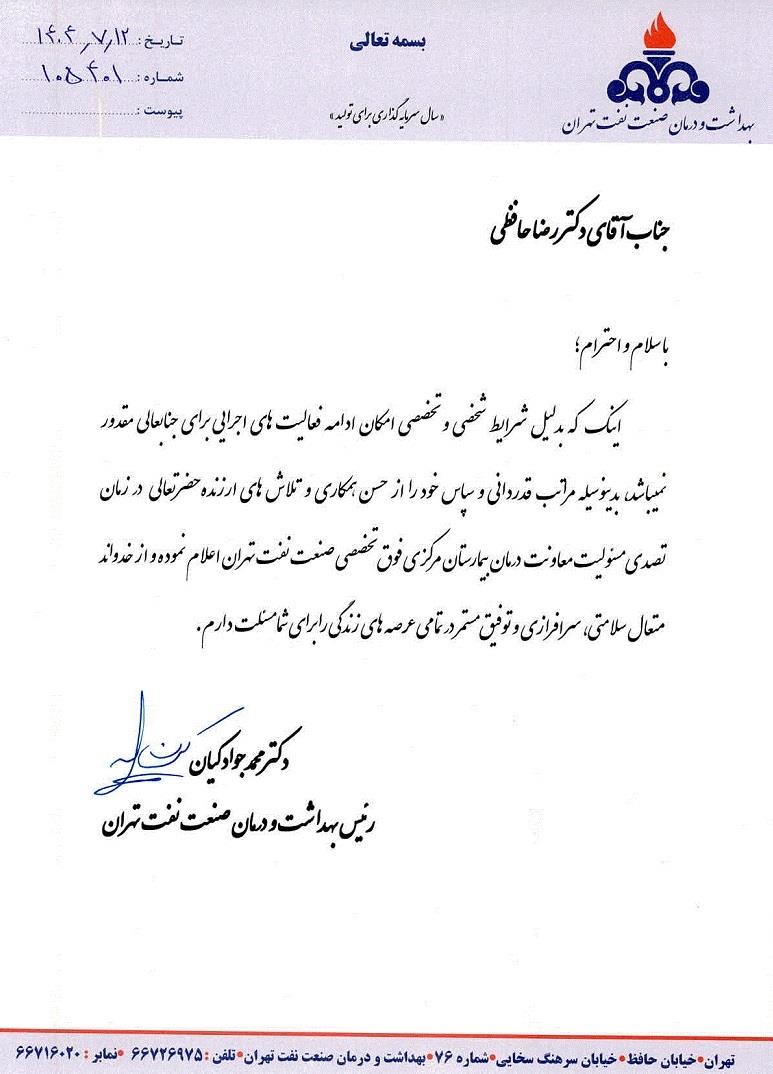 بسمه تعالی
تاریخ: ۱۴۰۴/۷/۱۲
شماره: ۱۰۵۴۰۱
پیوست:
«سال سرمایه گذاری برای تولید»
بهداشت و درمان صنعت نفت تهران
جناب آقای دکتر رضا حافظی
با سلام و احترام؛
اینک که بدلیل شرایط شخصی و تخصصی امکان ادامه فعالیت های اجرایی برای جنابعالی مقدور
نمیباشد، بدینوسیله مراتب قدردانی و سپاس خود را از حسن همکاری و تلاش های ارزنده حضرتعالی در زمان
تصدی مسئولیت معاونت درمان بیمارستان مرکزی فوق تخصصی صنعت نفت تهران اعلام نموده و از خداوند
متعال سلامتی، سرافرازی و توفیق مستمر در تمامی عرصه های زندگی را برای شما مسئلت دارم.
دکتر محمد جواد کیان
رئیس بهداشت و درمان صنعت نفت تهران
تهران • خیابان حافظ • خیابان سرهنگ سخایی • شماره ۷۶ • بهداشت و درمان صنعت نفت تهران • تلفن: ۶۶۷۲۶۹۷۵ • نمابر: ۶۶۷۱۶۰۲۰